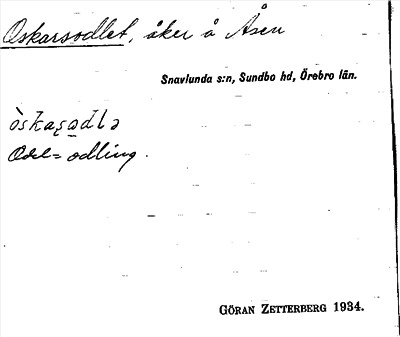 Oskarsodlet, åker å Åsen
Snavlunda s:n, Sundbo hd, Örebro län.
òskaʂədlə
Odl = odling.
GÖRAN ZETTERBERG 1934.